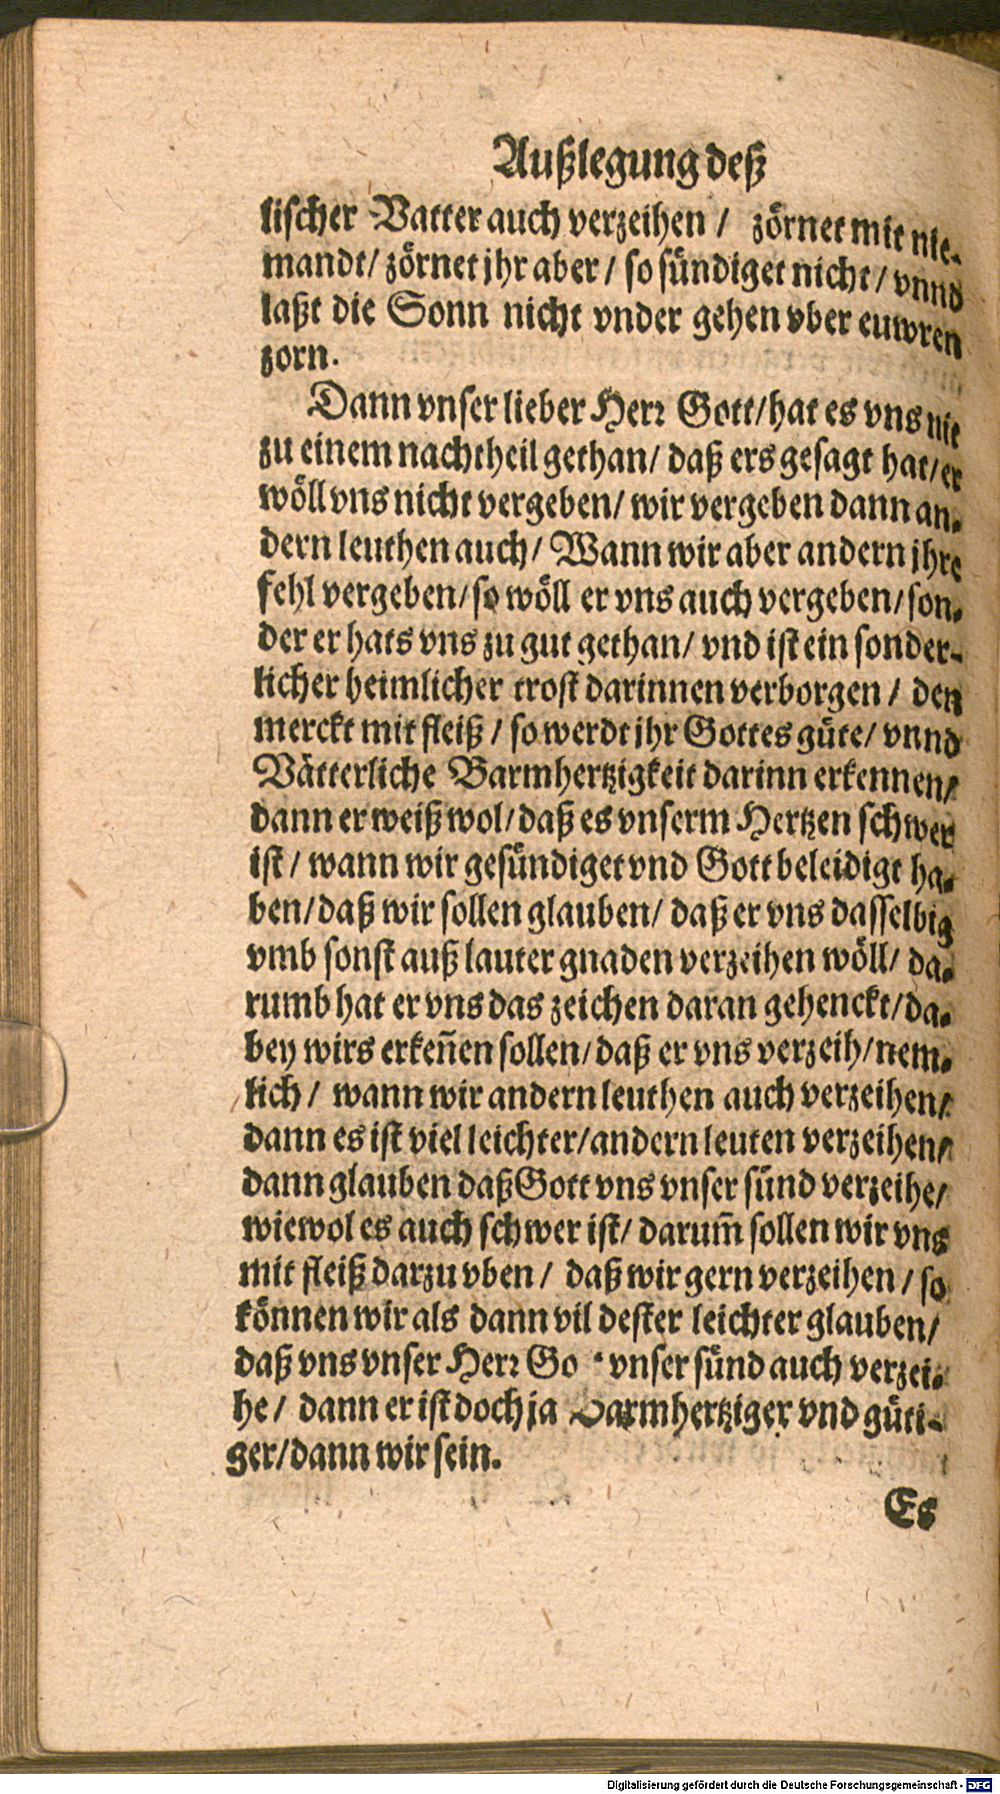 Außlegung deß
lischer Vatter auch verzeihen / zörnet mit nie-
mandt/ zörnet jhr aber / so sündiget nicht / vnnd
laßt die Sonn nicht vnder gehen vber euwren
zorn.
Dann vnser lieber Herr Gott/ hat es vns nit
zu einem nachtheil gethan/ daß ers gesagt hat/ er
wöll vns nicht vergeben/ wir vergeben dann an-
dern leuthen auch/ Wann wir aber andern jhre
fehl vergeben/ so wöll er vns auch vergeben/ son-
der er hats vns zu gut gethan/ vnd ist ein sonder-
licher heimlicher trost darinnen verborgen / den
merckt mit fleiß / so werdt jhr Gottes güte/ vnnd
Vätterliche Barmhertzigkeit darinn erkennen/
dann er weiß wol/ daß es vnserm Hertzen schwer
ist / wann wir gesündiget vnd Gott beleidigt ha-
ben/ daß wir sollen glauben/ daß er vns dasselbig
vmb sonst auß lauter gnaden verzeihen wöll/ da-
rumb hat er vns das zeichen daran gehenckt/ da-
bey wirs erkeñen sollen/ daß er vns verzeih/ nem-
lich / wann wir andern leuthen auch verzeihen/
dann es ist viel leichter/ andern leuten verzeihen/
dann glauben daß Gott vns vnser sünd verzeihe/
wiewol es auch schwer ist/ darum̃ sollen wir vns
mit fleiß darzu vben / daß wir gern verzeihen / so
können wir als dann vil dester leichter glauben/
daß vns vnser Herr Go vnser sünd auch verzei-
he / dann er ist doch ja barmhertziger vnd güti-
ger/ dann wir sein.
Es
Digitalisierung gefördert durch die Deutsche Forschungsgemeinschaft - DFG